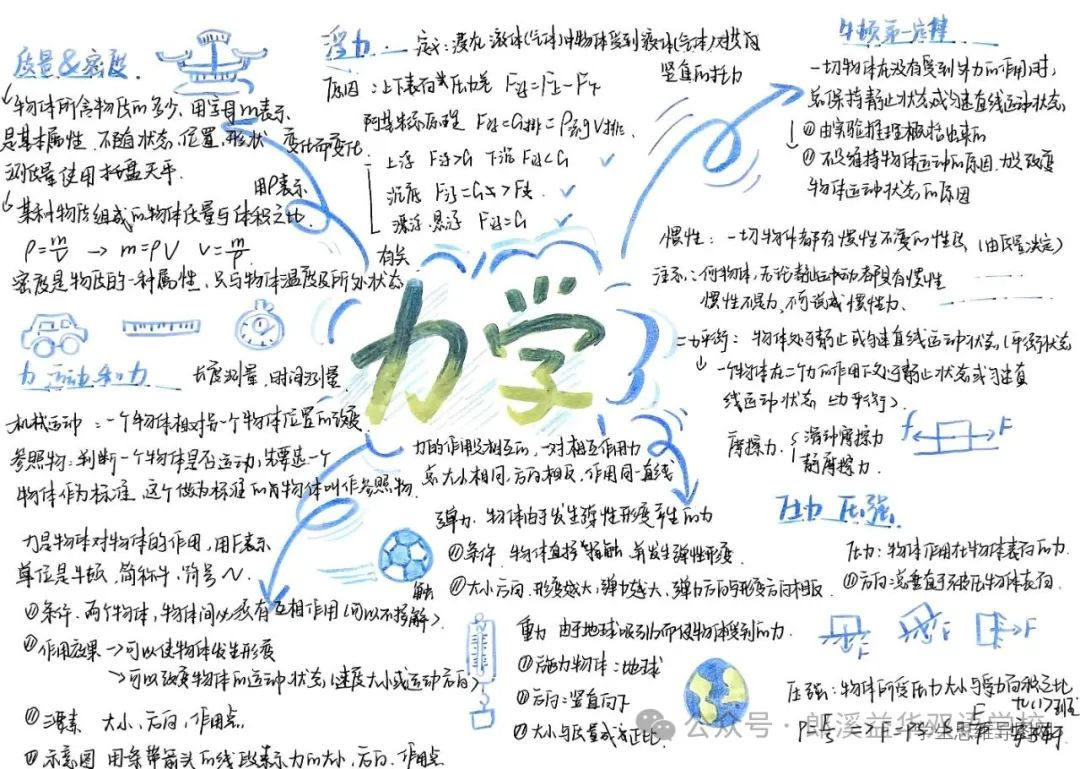 质量&密度
物体所含物质的多少,用字母m表示
是基本属性.不随状态,位置,形状 变化而变化
测质量使用托盘天平.
用ρ表示
某种物质组成的物体质量与体积之比.
ρ=m/V → m=ρV V=m/ρ
有关
密度是物质的一种属性,只与物体温度及所处状态
浮力.
定义:浸在液体(气体)中物体受到液体(气体)对其的
竖直向上托力
原因:上下表面类压力差 F浮=F上-F下
阿基米德原理 F浮=G排=ρ液gV排.
上浮 F浮>G 下沉 F浮<G
漂浮.悬浮 F浮=G
牛顿第一定律
一切物体在没有受到外力的作用时,
总保持静止状态或匀速直线运动状态
①由实验推理概括出来的
①不是维持物体运动的原因.力是改变
物体运动状态的原因
惯性:一切物体都有惯性不变的性质(由质量决定)
惯性不是力,不可说成惯性力.
二力平衡:物体处于静止或匀速直线运动状态(平衡状态
一个物体在二个力的作用下处于静止状态或匀速直
线运动状态
摩擦力.
滑动摩擦力
静摩擦力.
f
F
力学
力 运动和力
长度测量,时间测量.
机械运动:一个物体相对另一个物体位置的改变
参照物:判断一个物体是否运动,先要选一个
物体作为标准.这个做为标准的物体叫作参照物.
力是物体对物体的作用,用F表示
单位是牛顿.简称牛,符号N.
①条件.两个物体,物体间必须有互相作用(可以不接触)
②作用效果→可以使物体发生形变
→可以改变物体的运动状态(速度大小或运动方向)
大小.方向,作用点.
示意图 用条带箭头的线段表示力的大小,方向.作用点
力的作用是相互的,一对相互作用力
总大小相同,方向相反,作用同一直线
弹力.物体由于发生弹性形变产生的力
①条件.物体直接接触,并发生弹性形变
②大小方向.形变越大,弹力越大,弹力方向与形变方向相反
重力 由于地球吸引力而使物体受到的力.
①施力物体:地球
②方向:竖直向下
②大小与质量成正比.
压力 压强
压力:物体作用在物体表面的力.
②方向:总垂直于被压物体表面.
F
F
F
压强:物体所受压力大小与受力面积之比
公众号 · 郎溪益华双语学校